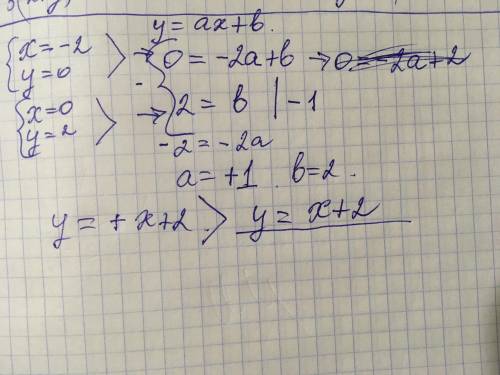 y = ax+b.
{ x=-2
y=0 > → { 0 = -2a+b →
{ x=0
y=2 > → 2 = b | -1
-2 = -2a
a = +1 . b=2 .
y = + x+2 > y = x+2